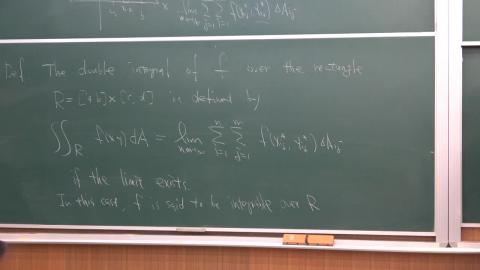 Def The double integral of f over the rectangle
R = [a,b] × [c,d] is defined by
∬_R f(x,y) dA = lim_{n,m→∞} Σ_{i=1}^{n} Σ_{j=1}^{m} f(x_i^*, y_j^*) ΔA_{ij}
if the limit exists.
In this case, f is said to be integrable over R